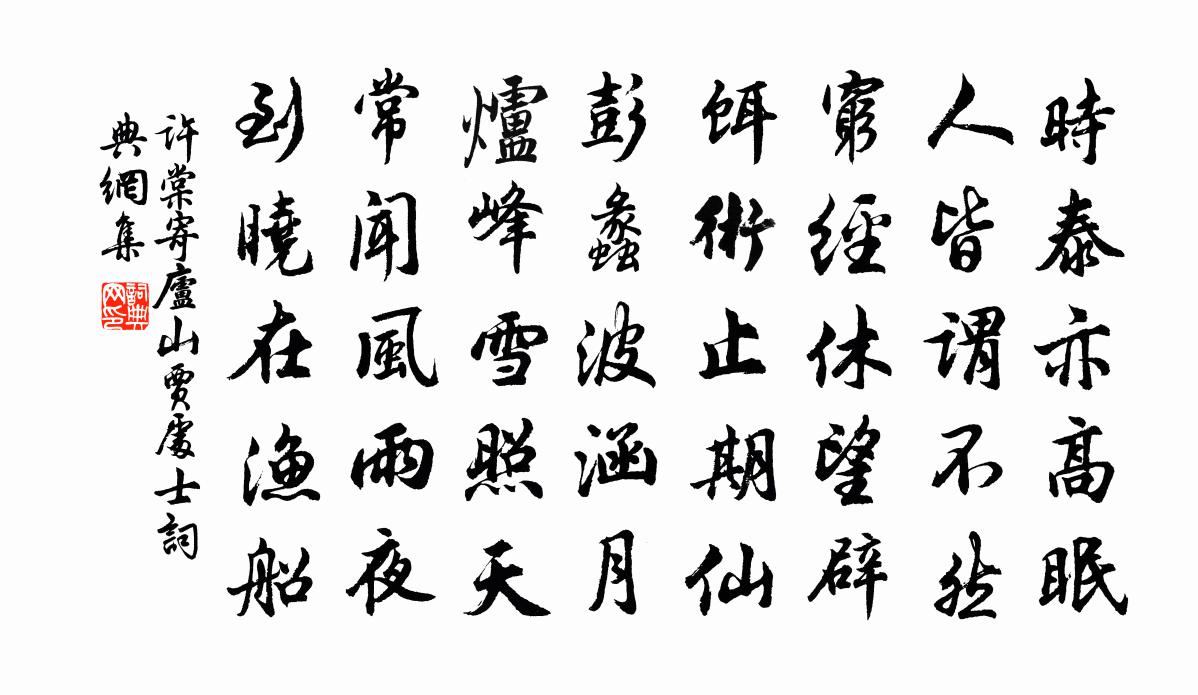 時泰亦高眠
人皆謂不然
窮經休望辟
餌術止期仙
彭蠡波涵月
爐峰雪照天
常聞風雨夜
到曉在漁船
許棠寄廬山賈處士詞
典網集
詞典
网印